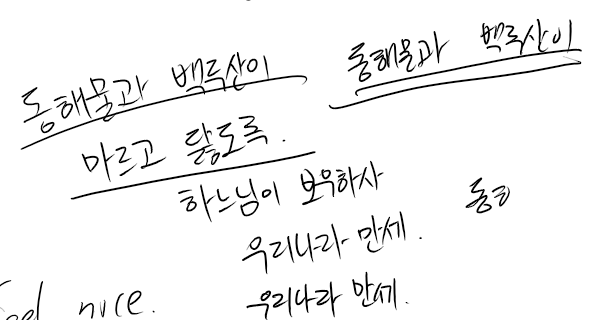 동해물과 백두산이
동해물과 백두산이
마르고 닳도록.
하느님이 보우하사
동ㅎ
우리나라 만세.
우리나라 만세.
nice.